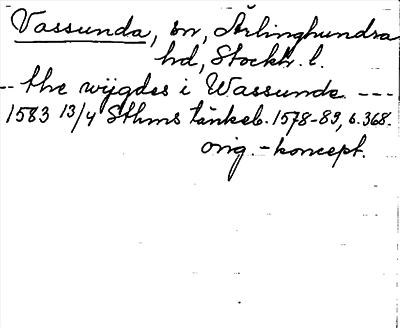 Vassunda, sn, Ärlinghundra
hd, Stockh. l.
-- the wijgdes i Wassunda ---
1583 13/4 Sthms tänkeb. 1578-83, s. 368.
orig. - koncept.